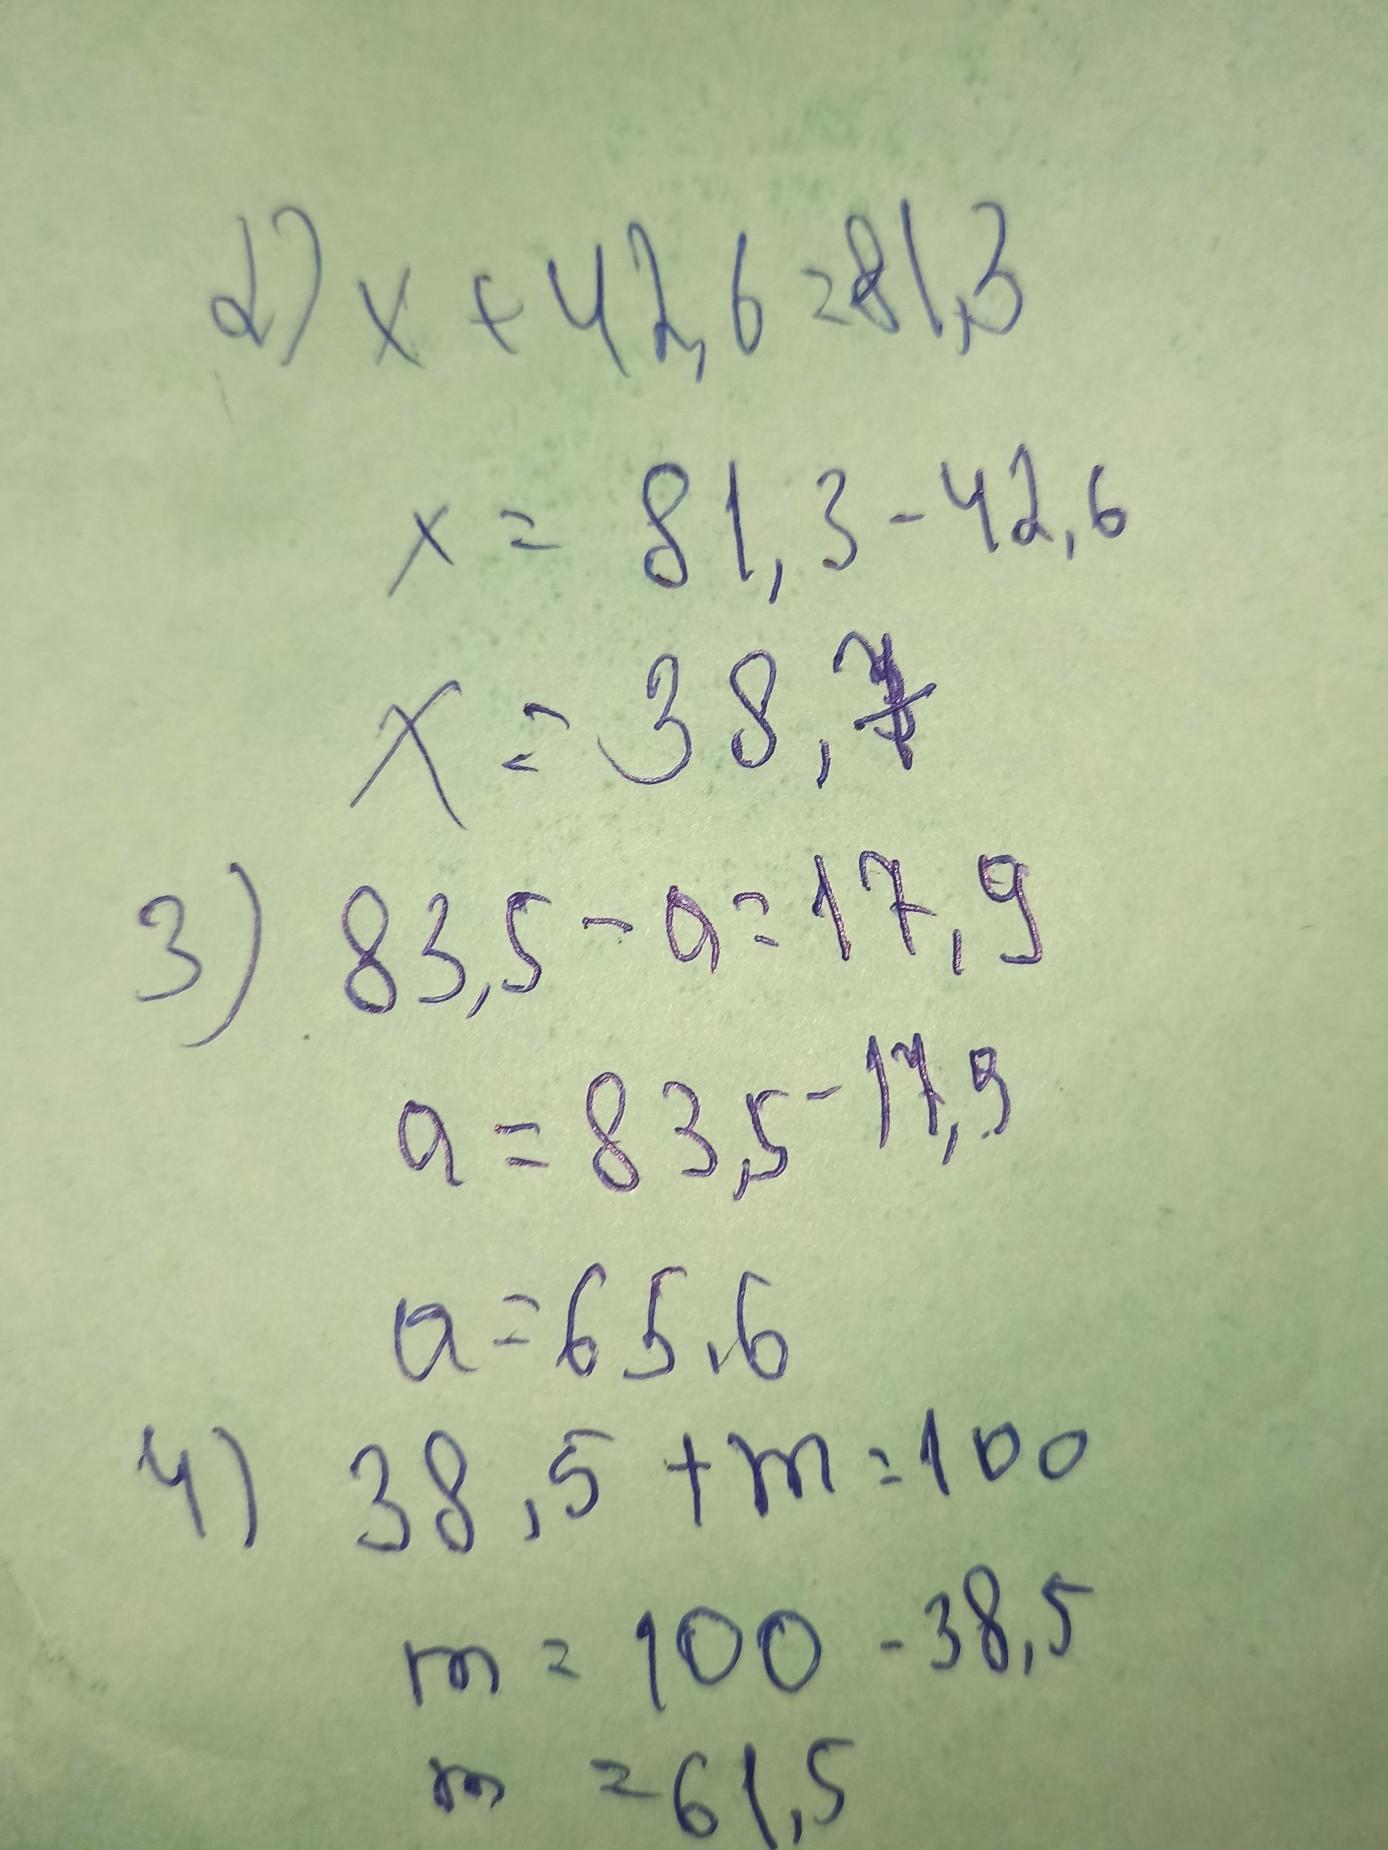 2) x + 42,6 = 81,3
x = 81,3 - 42,6
x = 38,7
3) 83,5 - a = 17,9
a = 83,5 - 17,9
a = 65,6
4) 38,5 + m = 100
m = 100 - 38,5
m = 61,5